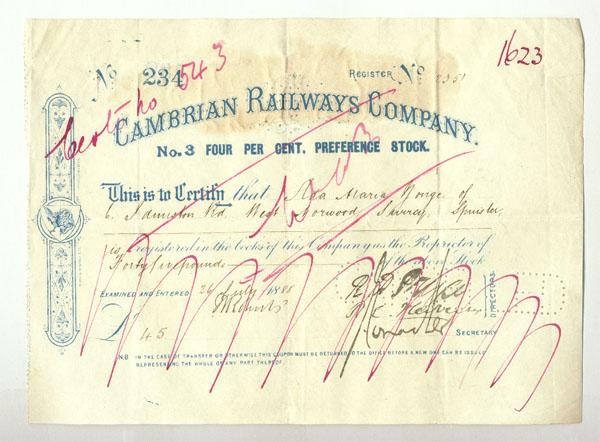 No 234 Register No 2351 1623
Cert No 543
CAMBRIAN RAILWAYS COMPANY.
No. 3 FOUR PER CENT. PREFERENCE STOCK.
This is to Certify that Ada Maria Monge of
6 Idmiston Rd. West Norwood Surrey, Spinster,
is registered in the books of this Company as the Proprietor of
Forty five pounds of the above Stock
EXAMINED AND ENTERED 26 July 1888
DIRECTORS
£ 45
SECRETARY
NB IN THE CASE OF TRANSFER OR OTHERWISE THIS COUPON MUST BE RETURNED TO THE OFFICE BEFORE A NEW ONE CAN BE ISSUED
REPRESENTING THE WHOLE OR ANY PART THEREOF.